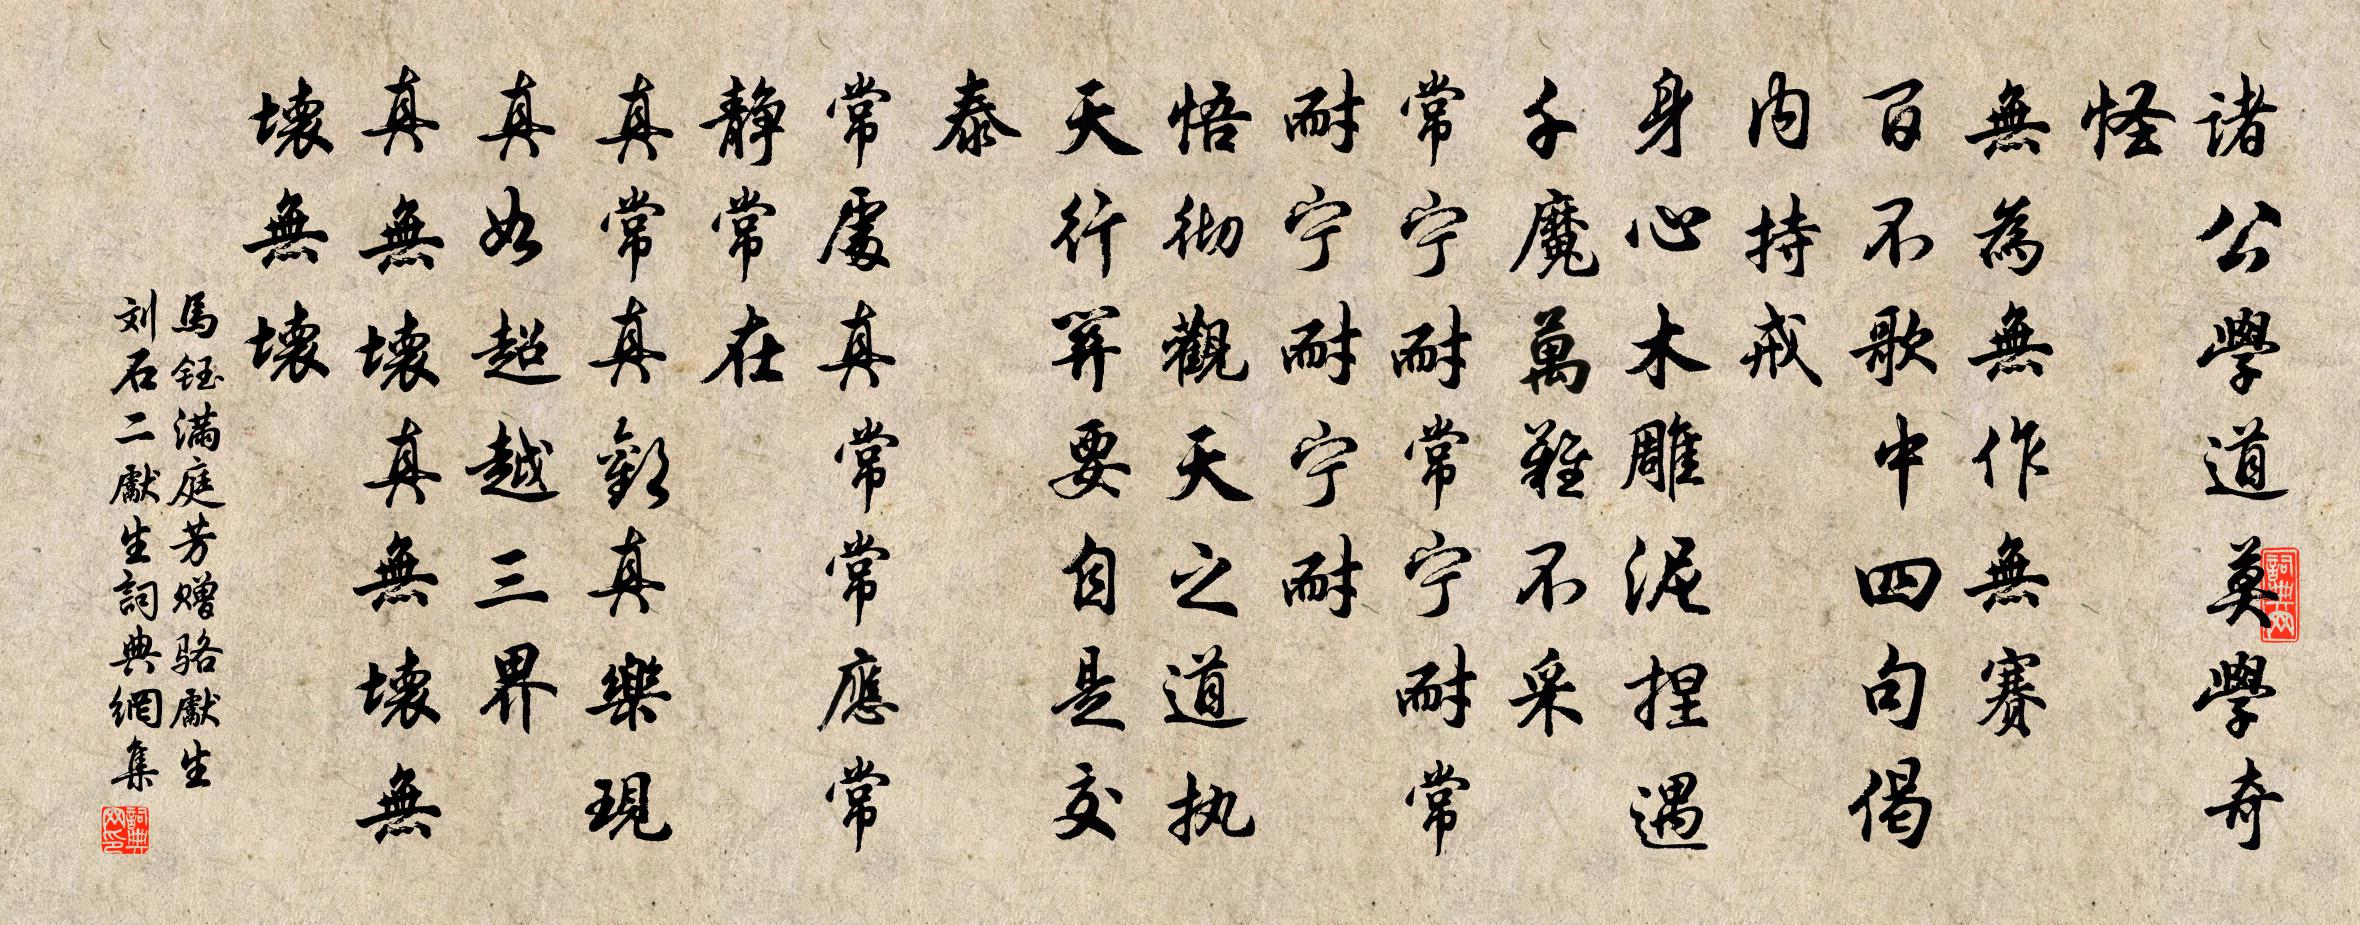 諸公學道莫學奇
怪
無為無作無賽
百不歌中四句偈
内持戒
身心木雕泥捏遇
千魔萬難不采
常宁耐常宁耐常
耐宁耐宁耐
悟彻觀天之道执
天行筭要自是交
泰
常處真常常應常
静常在
真常真歡真樂現
真如超越三界
真無壞真無壞無
壞無壞
馬鈺满庭芳赠骆獻生
刘石二獻生詞典網集
詞典网
詞典网印